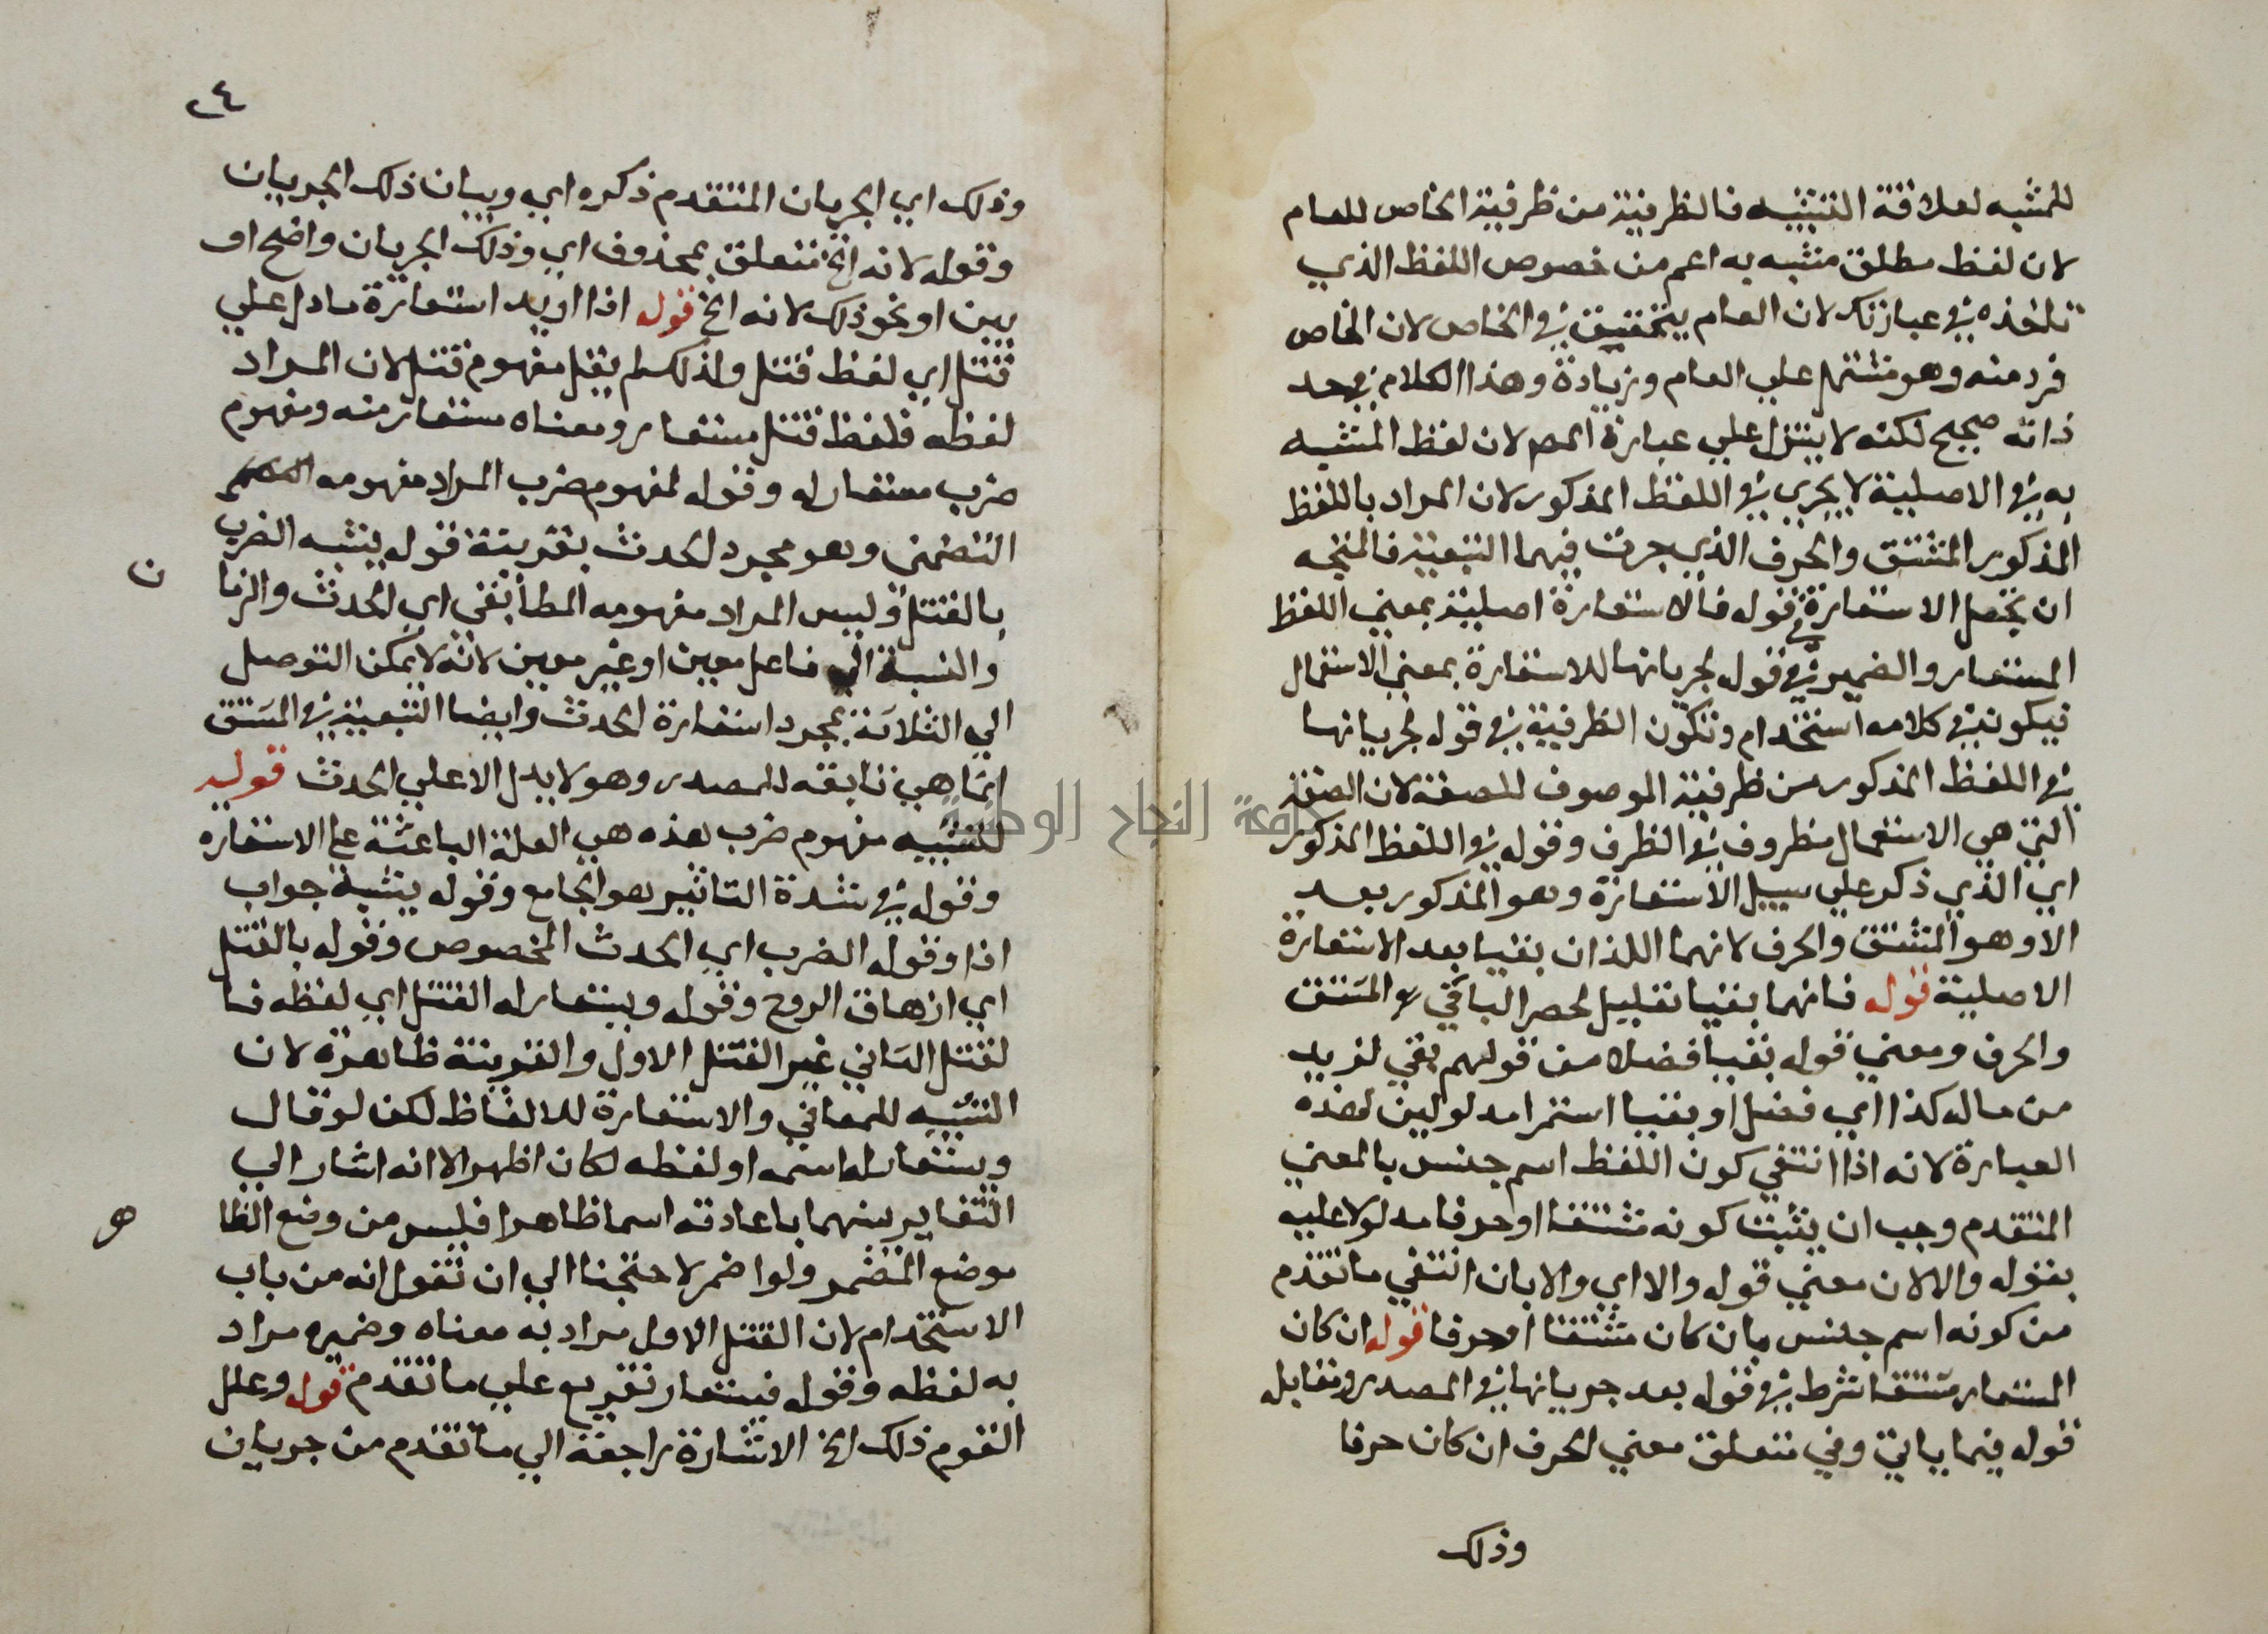 للمشبه لعلاقة التشبيه فالظرفية من ظرفية الخاص للعام
لان لفظ مطلق مشبه به اعم من خصوص اللفظ الذي
تاخذه في عبارتك لان العام يتحقق في الخاص لان الخاص
فرد منه وهو مشتمل علي العام وزيادة وهذا الكلام في حد
ذاته صحيح لكنه لا يتنزل علي عبارة المص لان لفظ المشبه
به في الاصلية لا يجري في اللفظ المذكور لان المراد باللفظ
المذكور المشتق والحرف الذي جرت فيهما التبعية فالمتجه
ان تجعل الاستعارة في قوله فالاستعارة اصلية بمعني اللفظ
المستعار والضمير في قوله لجريانها للاستعارة بمعني الاستعمال
فيكون في كلامه استخدام وتكون الظرفية في قوله لجريانها
في اللفظ المذكور من ظرفية الموصوف للصفة لان الصفة
التي هي الاستعمال مظروف في الظرف وقوله في اللفظ المذكور
اي الذي ذكر علي سبيل الاستعارة وهو المذكور بعد
الا وهو المشتق والحرف لانهما اللذان بقيا بعد الاستعارة
الاصلية قوله فانهما بقيا تعليل لحصر الباقي في المشتق
والحرف ومعني قوله بقيا فضلا من قولهم بقي لزيد
من ماله كذا اي فضل او بقيا استمرا مدلولين لهذه
العبارة لانه اذا انتفي كون اللفظ اسم جنس بالمعني
المتقدم وجب ان يثبت كونه مشتقا او حرفا مدلولا عليه
بقوله والا لان معني قوله والا اي والا بان انتفي ما تقدم
من كونه اسم جنس بان كان مشتقا او حرفا قوله ان كان
المستعار مشتقا شرط في قوله بعد جريانها في المصدر ومقابله
قوله فيما ياتي وفي متعلق معني الحرف ان كان حرفا
وذلك
٢٤
وذلك اي الجريان المتقدم ذكره اي وبيان ذلك الجريان
وقوله لانه الخ متعلق بمحذوف اي وذلك الجريان واضح او
بين او نحو ذلك لانه الخ قوله اذا اريد استعارة ما دل علي
قتل اي لفظ قتل ولذلك لم يقل مفهوم قتل لان المراد
لفظه فلفظ قتل مستعار ومعناه مستعار منه ومفهوم
ضرب مستعار له وقوله لمفهوم ضرب المراد مفهومه
التضمني وهو مجرد الحدث بقرينة قوله يشبه الضرب
بالقتل وليس المراد مفهومه المطابقي اي الحدث والزما
ن
والنسبة الي فاعل معين او غير معين لانه لا يمكن التوصل
الي الثلاثة بمجرد استعارة الحدث وايضا التبعية في المشتق
انما هي تابعة للمصدر وهو لا يدل الا علي الحدث قوله
لتشبيه مفهوم ضرب هذه هي العلة الباعثة علي الاستعاره
وقوله في شدة التاثير هو الجامع وقوله يشبه جواب
اذا وقوله الضرب اي الحدث المخصوص وقوله بالقتل
اي ازهاق الروح وقوله ويستعار له القتل اي لفظه فا
لقتل الثاني غير القتل الاول والقرينة ظاهرة لان
التشبيه للمعاني والاستعارة للالفاظ لكن لو قال
ويستعار له اسمه او لفظه لكان اظهر الا انه اشار الي
التغاير بينهما باعادته اسما ظاهرا فليس من وضع الظا
هر
موضع المضمر ولو اضمر لاحتجنا الي ان نقول انه من باب
الاستخدام لان القتل الاول مراد به معناه وضميره مراد
به لفظه وقوله فيستعار تفريع علي ما تقدم قوله وعلل
القوم ذلك الخ الاشارة راجعة الي ما تقدم من جريان
جامعة النجاح الوطنية